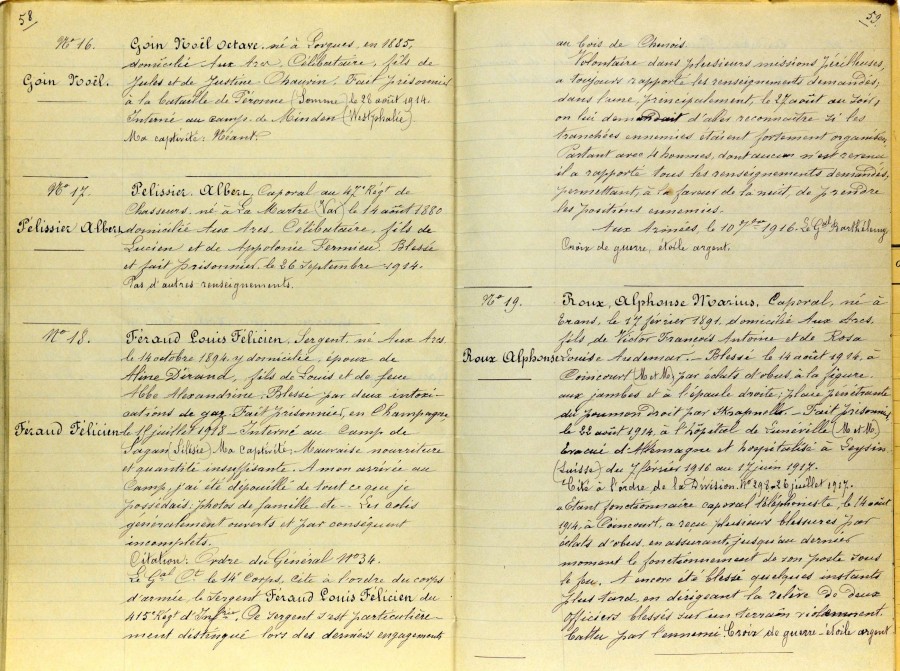 58
No 16.
Goin Noël.
Goin Noël Octave, né à Sorgues, en 1885,
domicilié Aux Arcs, Célibataire, fils de
Jules et de Justine Chauvin. Fait prisonnier
à la bataille de Péronne (Somme) le 28 août 1914.
Interné au camp de Minden (Westphalie)
Ma captivité: Néant.
No 17.
Pélissier Albert
Pélissier, Albert, Caporal au 47e Régt de
Chasseurs, né à La Martre (Var) le 14 août 1880
domicilié Aux Arcs, Célibataire, fils de
Lucien et de Appolonie Fermieu. Blessé
et fait prisonnier, le 26 septembre 1914.
Pas d'autres renseignements.
No 18.
Féraud Félicien
Féraud Louis Félicien, Sergent, né Aux Arcs,
le 14 octobre 1894, y domicilié, époux de
Aline Dérand, fils de Louis et de feue
Abbe Alexandrine. Blessé par deux intoxi-
cations de gaz. Fait prisonnier, en Champagne,
le 15 juillet 1918. Interné au Camp de
Sagan (Silésie) Ma captivité: Mauvaise nourriture
et quantité insuffisante. A mon arrivée au
Camp, j'ai été dépouillé de tout ce que je
possédais: photos de famille etc... Les colis
généralement ouverts et par conséquent
incomplets.
Citation: Ordre du Général No 34.
Le Gal Ct le 14e Corps, Cite à l'ordre du corps
d'armée, le sergent Féraud Louis Félicien du
415e Régt d'Infrie. Ce sergent s'est particulière-
ment distingué lors des derniers engagements
59
au bois de Chenois.
Volontaire dans plusieurs missions périlleuses,
a toujours rapporté les renseignements demandés;
dans l'une, principalement, le 27 août au soir,
on lui demandait d'aller reconnaître si les
tranchées ennemies étaient fortement organisées.
Partant avec 4 hommes, dont aucun n'est revenu
il a rapporté tous les renseignements demandés,
permettant, à la faveur de la nuit, de prendre
les positions ennemies.
Aux Armées, le 10 7bre 1916. Le Gal Barthélemy
Croix de guerre, étoile argent.
No 19.
Roux Alphonse
Roux, Alphonse Marius, Caporal, né à
Evans, le 17 février 1891, domicilié Aux Arcs,
fils de Victor François Antoine et de Rosa
Louise Audemar. Blessé le 14 août 1914, à
Coincourt (M et M), par éclats d'obus, à la figure,
aux jambes et à l'épaule droite; plaie pénétrante
du poumon droit par Skrapnells. Fait prisonnier,
le 22 août 1914, à l'hôpital de Lunéville (M et M)
Evacué d'Allemagne et hospitalisé à Leysin
(Suisse) du 7 février 1916 au 17 juin 1917.
Cité à l'ordre de la Division No 298 - 26 juillet 1917.
étant fonctionnaire caporal téléphoniste, le 14 août
1914, à Coincourt, a reçu plusieurs blessures par
éclats d'obus, en assurant, jusqu'au dernier
moment le fonctionnement de son poste sous
le feu. A encore été blessé quelques instants
plus tard, en dirigeant la relève de deux
officiers blessés sur un terrain violemment
battu par l'ennemi Croix de guerre - étoile argent